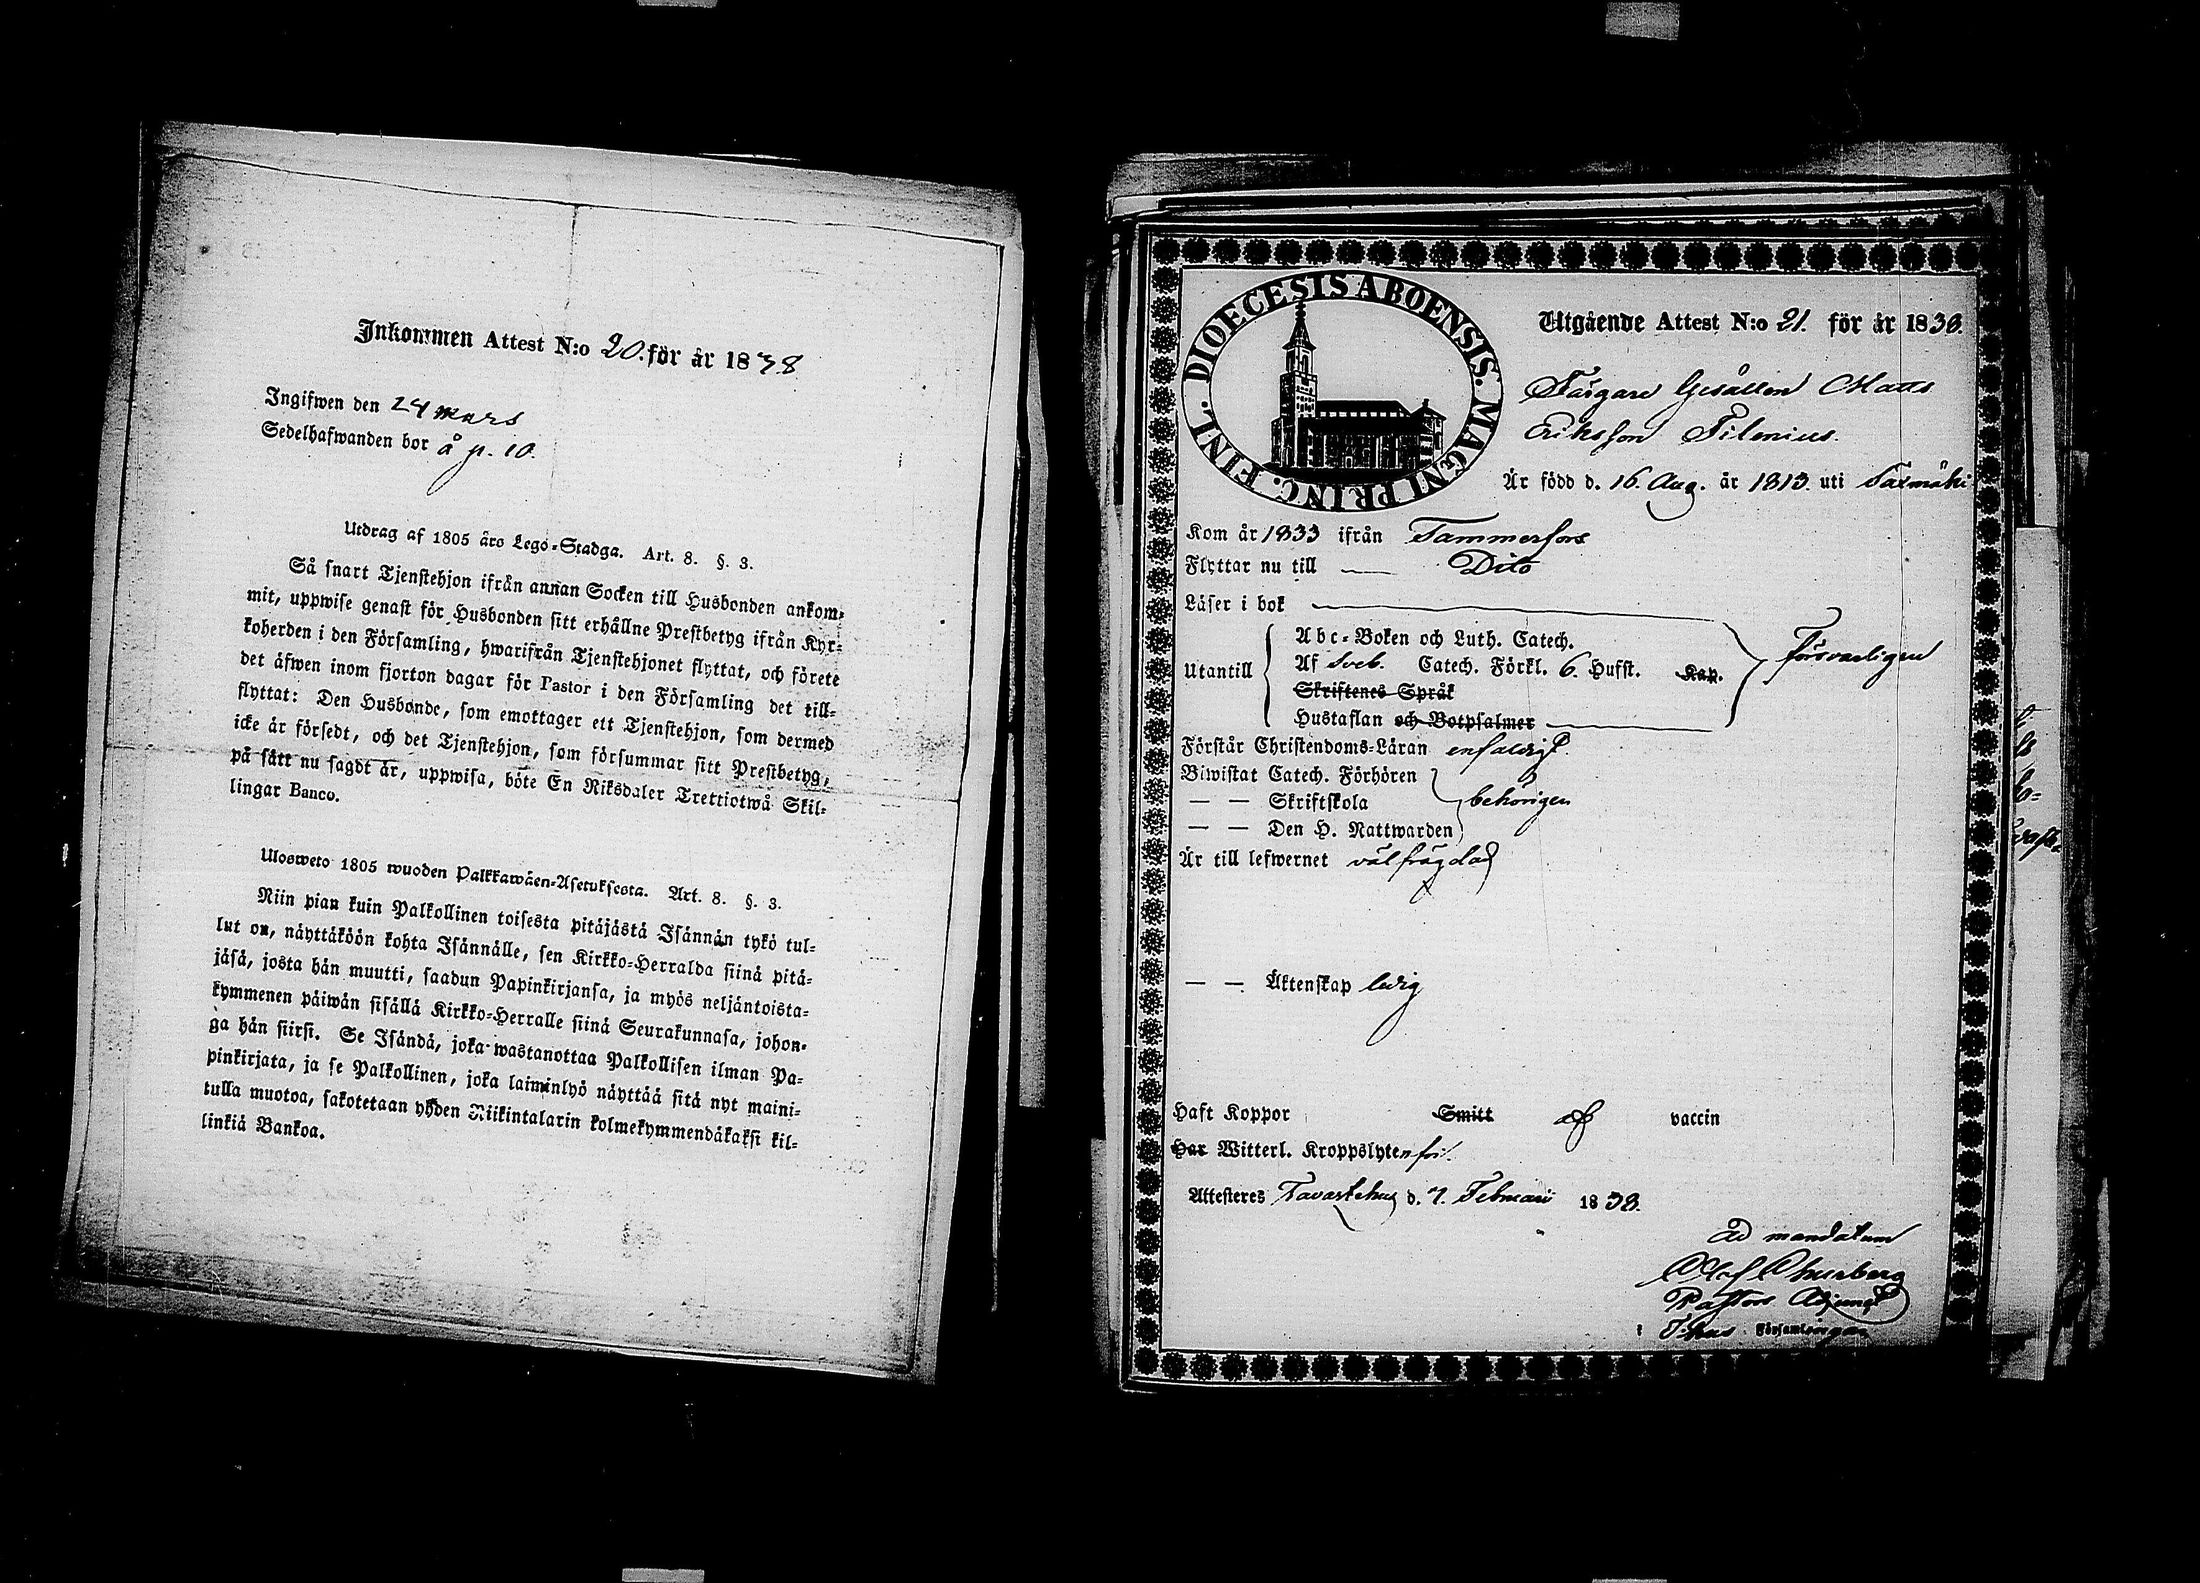 Inkommen Attest N:o 20. för år 1838
Ingifwen den 24 Mars
Sedelhafwanden bor å p. 10.
Utdrag af 1805 års Lego-Stadga. Art. 8. §. 3.
Så snart Tjenstehjon ifrån annan Socken till Husbonden ankom-
mit, uppwise genast för Husbonden sitt erhållne Prestbetyg ifrån Kyr-
koherden i den Församling, hwarifrån Tjenstehjonet flyttat, och förete
det äfwen inom fjorton dagar för Pastor i den Församling det till-
flyttat: Den Husbonde, som emottager ett Tjenstehjon, som dermed
icke är försedt, och det Tjenstehjon, som försummar sitt Prestbetyg,
på sätt nu sagdt är, uppwisa, böte En Riksdaler Trettiotwå Skil-
lingar Banco.
Ulosweto 1805 wuoden Palkkawäen-Asetuksesta. Art. 8. §. 3.
Niin pian kuin Palkollinen toisesta pitäjästä Isännän tykö tul-
lut on, näyttäköön kohta Isännälle, sen Kirkko-Herralda siinä pitä-
jäsä, josta hän muutti, saadun Papinkirjansa, ja myös neljäntoista-
kymmenen päiwän sisällä Kirkko-Herralle siinä Seurakunnasa, johon-
ga hän siirsi. Se Isändä, joka wastanottaa Palkollisen ilman Pa-
pinkirjata, ja se Palkollinen, joka laiminlyö näyttää sitä nyt maini-
tulla muotoa, sakotetaan yhden Riikintalarin kolmekymmendäkaksi kil-
linkiä Bankoa.
DIOECESIS ABOENSIS. MAGNI PRINC. FINL.
Utgående Attest N:o 21. för år 1838.
Färgare Gesällen Matts
Eriksson Filenius.
Är född d. 16. Aug. år 1813. uti Saxmäki
Kom år 1833 ifrån Tammerfors
Flyttar nu till — Dito
Läser i bok
Abc-Boken och Luth. Catech.
Utantill Af Sveb. Catech. Förkl. 6. Hufst. Kap. Försvarligen
Skriftenes Språk
Hustaflan och Botpsalmer
Förstår Christendoms-Läran enfaldigt.
Biwistat Catech. Förhören
— — Skriftskola behörigen
— — Den H. Nattwarden
Är till lefwernet välfrägdad
— — Äktenskap ledig
Haft Koppor Smitt af vaccin
Har Witterl. Kroppslyten fri.
Attesteres Tavastehus d. 7. Februari 1838.
Ad mandatum
Olof Churberg
Pastors Adjunct
i T:hus Församlingar